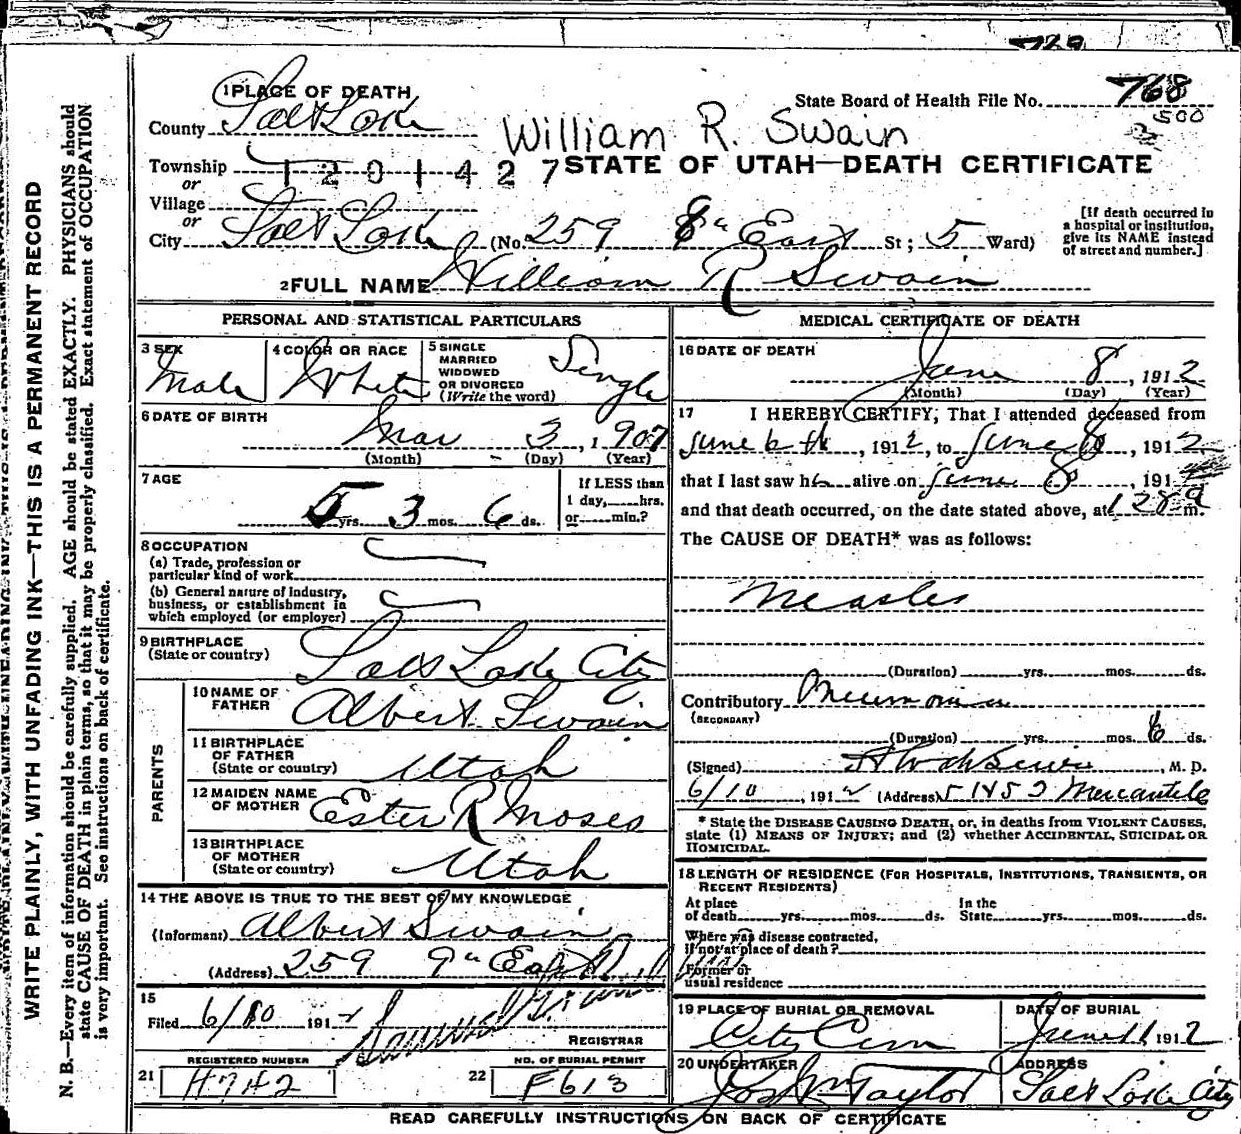 WRITE PLAINLY, WITH UNFADING INK—THIS IS A PERMANENT RECORD
N. B.—Every item of information should be carefully supplied. AGE should be stated EXACTLY. PHYSICIANS should
state CAUSE OF DEATH in plain terms, so that it may be properly classified. Exact statement of OCCUPATION
is very important. See instructions on back of certificate.
1 PLACE OF DEATH
State Board of Health File No. 768
County Salt Lake
500
William R. Swain
Township
1201427
STATE OF UTAH—DEATH CERTIFICATE
or
Village
or
City Salt Lake (No. 259 East St; 5 Ward)
[If death occurred in
a hospital or institution,
give its NAME instead
of street and number.]
2 FULL NAME William R Swain
PERSONAL AND STATISTICAL PARTICULARS
3 SEX Male
4 COLOR OR RACE White
5 SINGLE
MARRIED
WIDOWED
OR DIVORCED
(Write the word) Single
6 DATE OF BIRTH
Mar 3, 1907
(Month) (Day) (Year)
7 AGE
5 yrs. 3 mos. 6 ds.
If LESS than
1 day, hrs.
or min.?
8 OCCUPATION
(a) Trade, profession or
particular kind of work
(b) General nature of industry,
business, or establishment in
which employed (or employer)
9 BIRTHPLACE
(State or country) Salt Lake City
PARENTS
10 NAME OF
FATHER Albert Swain
11 BIRTHPLACE
OF FATHER
(State or country) Utah
12 MAIDEN NAME
OF MOTHER Ester R Moses
13 BIRTHPLACE
OF MOTHER
(State or country) Utah
14 THE ABOVE IS TRUE TO THE BEST OF MY KNOWLEDGE
(Informant) Albert Swain
(Address) 259 9th East
15
Filed 6/10 1912
REGISTRAR
REGISTERED NUMBER
21 H742
NO. OF BURIAL PERMIT
22 F613
MEDICAL CERTIFICATE OF DEATH
16 DATE OF DEATH
June 8, 1912
(Month) (Day) (Year)
17 I HEREBY CERTIFY, That I attended deceased from
June 6th, 1912, to June 8, 1912
that I last saw h alive on June 8, 191
and that death occurred, on the date stated above, at m.
The CAUSE OF DEATH* was as follows:
Measles
(Duration) yrs. mos. ds.
Contributory Pneumonia
(SECONDARY)
(Duration) yrs. mos. 6 ds.
(Signed) , M. D.
6/10, 1912 (Address) Mercantile
* State the DISEASE CAUSING DEATH, or, in deaths from VIOLENT CAUSES,
state (1) MEANS OF INJURY; and (2) whether ACCIDENTAL, SUICIDAL OR
HOMICIDAL.
18 LENGTH OF RESIDENCE (FOR HOSPITALS, INSTITUTIONS, TRANSIENTS, OR
RECENT RESIDENTS)
At place
of death yrs. mos. ds.
In the
State yrs. mos. ds.
Where was disease contracted,
if not at place of death?
Former or
usual residence
19 PLACE OF BURIAL OR REMOVAL
City Cem
DATE OF BURIAL
June 11, 1912
20 UNDERTAKER
Jos Wm Taylor
ADDRESS
Salt Lake City
READ CAREFULLY INSTRUCTIONS ON BACK OF CERTIFICATE